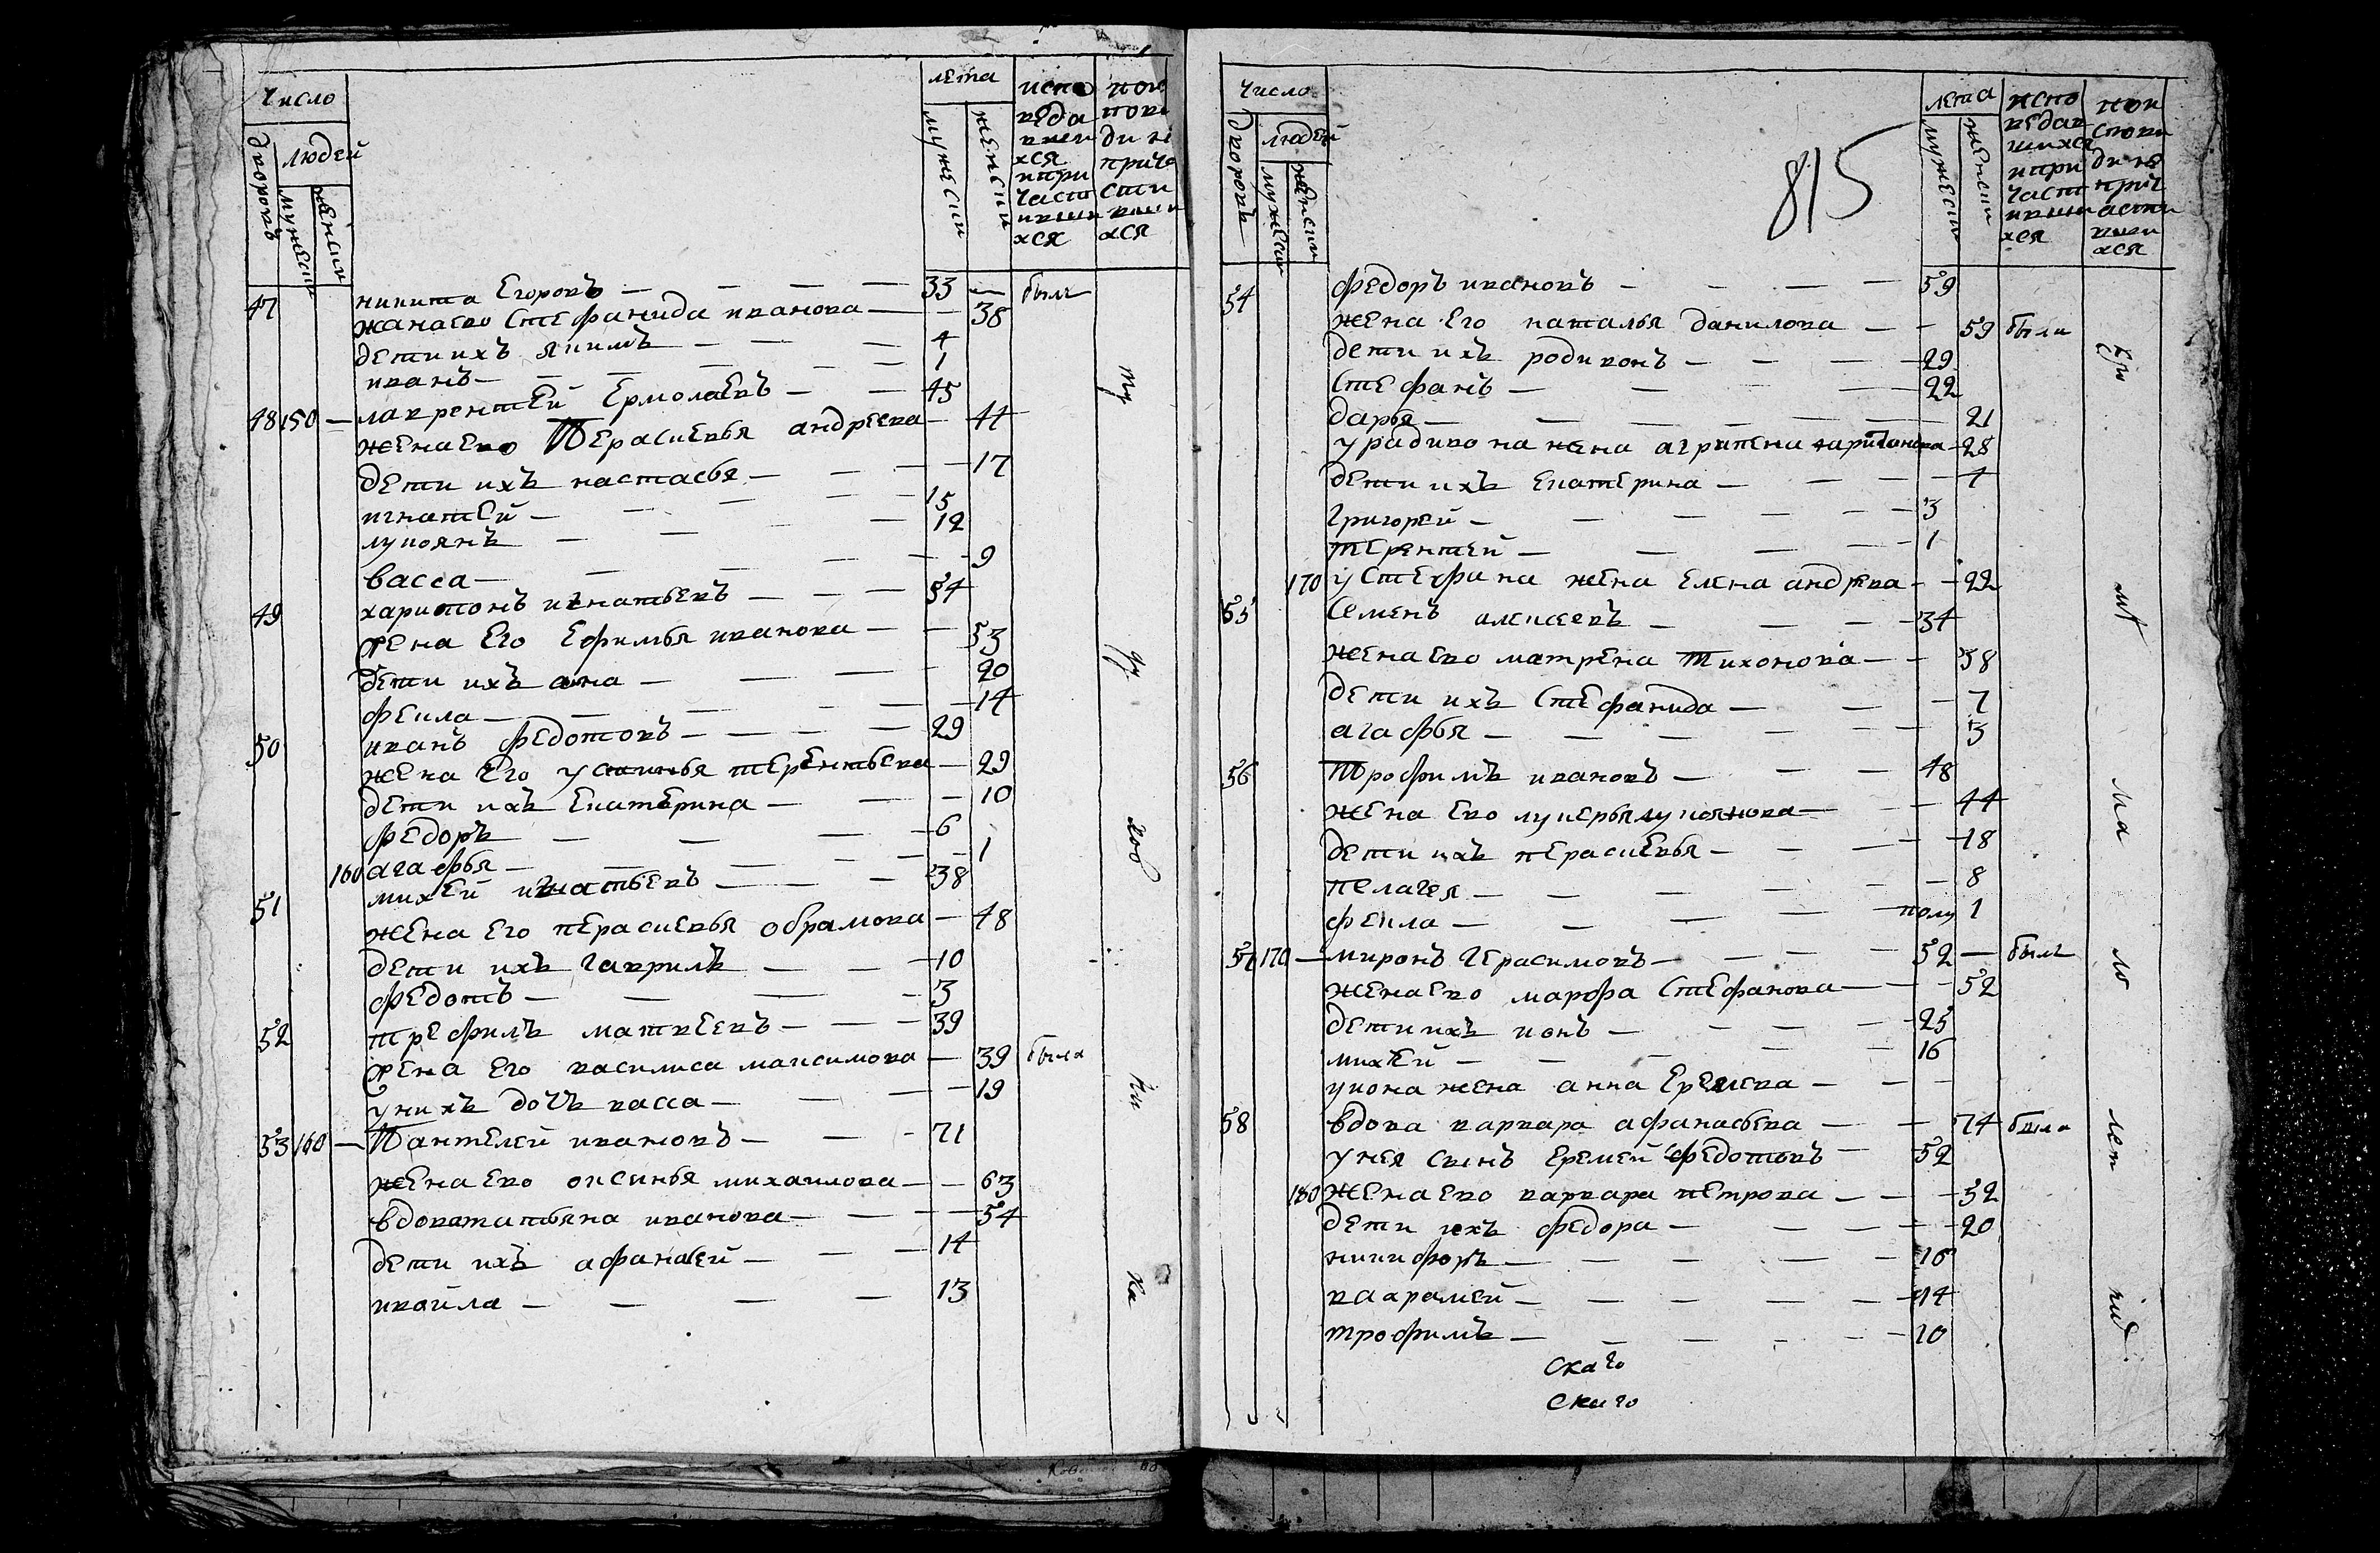 Число
людей
дворовъ
мужески
женски
лета
мужески
женски
испо
веда
вши
хся
и при
част
ивши
хся
47 никита Егоровъ — 33 — былъ
жанаево Стефанида иванова — 38
дети ихъ якимъ — 4
иванъ — 1
48 150 — лаврентей Ермолаевъ — 45
женаево Перасковья андреева — 44
дети ихъ настасья — 17
игнатей — 15
лукоянъ — 12
васса — 9
49 харитонъ игнатьевъ — 54
жена Его Ефимья иванова — 53
дети ихъ анна — 20
фекла — 14
50 иванъ федотовъ — 29
жена Его устинья терентьева — 29
дети ихъ Екатерина — 10
федоръ — 6
160 агафья — 1
51 михей игнатьевъ — 38
жена Его перасковья обрамова — 48
дети ихъ гаврилъ — 10
федотъ — 3
52 трефилъ матвеевъ — 39
жена Его василиса максимова — 39 была
у нихъ дочь васса — 19
53 160 — Пантелей ивановъ — 71
женаево оксинья михаилова — 63
вдовататьяна иванова — 54
дети ихъ афанасей — 14
ивойла — 13
815
Число
людей
дворовъ
мужески
женски
лета
мужески
женски
испо
ведав
шихся
и при
част
ивши
хся
54 федоръ ивановъ — 59
жена Его наталья данилова — 59 были
дети ихъ родивонъ — 29
Стефанъ — 22
дарья — 21
у радивона жена агрипена харитонова — 28
дети ихъ Екатерина — 7
григорей — 3
терентей — 1
170 у Стефана жена Елена андрева — 22
55 Семенъ алексеевъ — 34
женаево матрена Тихонова — 38
дети ихъ Стефанида — 7
агафья — 3
56 Трофимъ ивановъ — 48
жена ево лукерья лукоянова — 44
дети ихъ перасковья — 18
пелагея — 8
фекла — полу 1
57 170 — миронъ Герасимовъ — 52 — былъ
женаево марфа Стефанова — 52
дети ихъ ионъ — 25
михей — 16
у иона жена анна Еремева —
58 вдова варвара афанасьева — 74 была
у нея сынъ Еремей федотовъ — 52
180 женаево варвара петрова — 52
дети ихъ федора — 20
никифоръ — 16
вахрамей — 14
трофимъ — 10